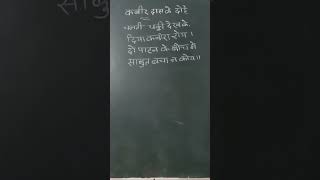 कबीर दास के दोहे
चलती चक्की देख के
दिया कबीरा रोय ।
दो पाटन के बीच में
साबुत बचा न कोय ॥